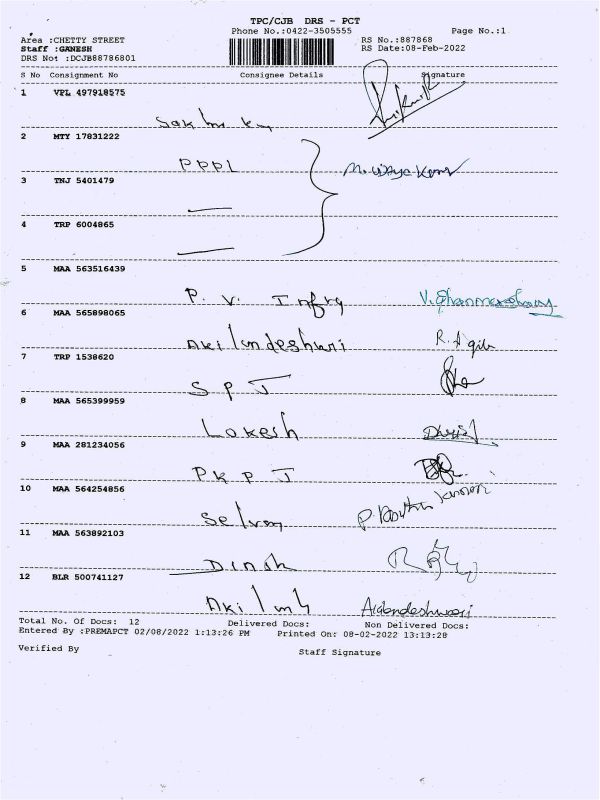 TPC/CJB DRS - PCT
Phone No.:0422-3505555 Page No.:1
Area :CHETTY STREET RS No.:887868
Staff :GANESH RS Date:08-Feb-2022
DRS No: :DCJB88786801
S No Consignment No Consignee Details Signature
1 VPL 497918575
2 MTY 17831222
PPPL
3 TNJ 5401479
4 TRP 6004865
5 MAA 563516439
P. V. Infra
6 MAA 565898065
Akilandeshwari R. Agila
7 TRP 1538620
S P J
8 MAA 565399959
Lokesh
9 MAA 281234056
P K P J
10 MAA 564254856
Selvam
11 MAA 563892103
Dinsh
12 BLR 500741127
Akilandeshwari
Total No. Of Docs: 12 Delivered Docs: Non Delivered Docs:
Entered By :PREMAPCT 02/08/2022 1:13:26 PM Printed On: 08-02-2022 13:13:28
Verified By Staff Signature